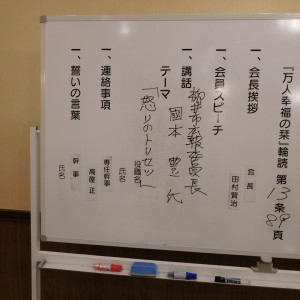 『万人幸福の栞』輪読 第13条89頁
一、会長挨拶
会長
田村賢治
一、会員スピーチ
一、講話
國本 豊 氏
テーマ
「怒りのトリセツ」
役職名
氏名
一、連絡事項
専任幹事
高屋 正
一、誓いの言葉
幹事
氏名